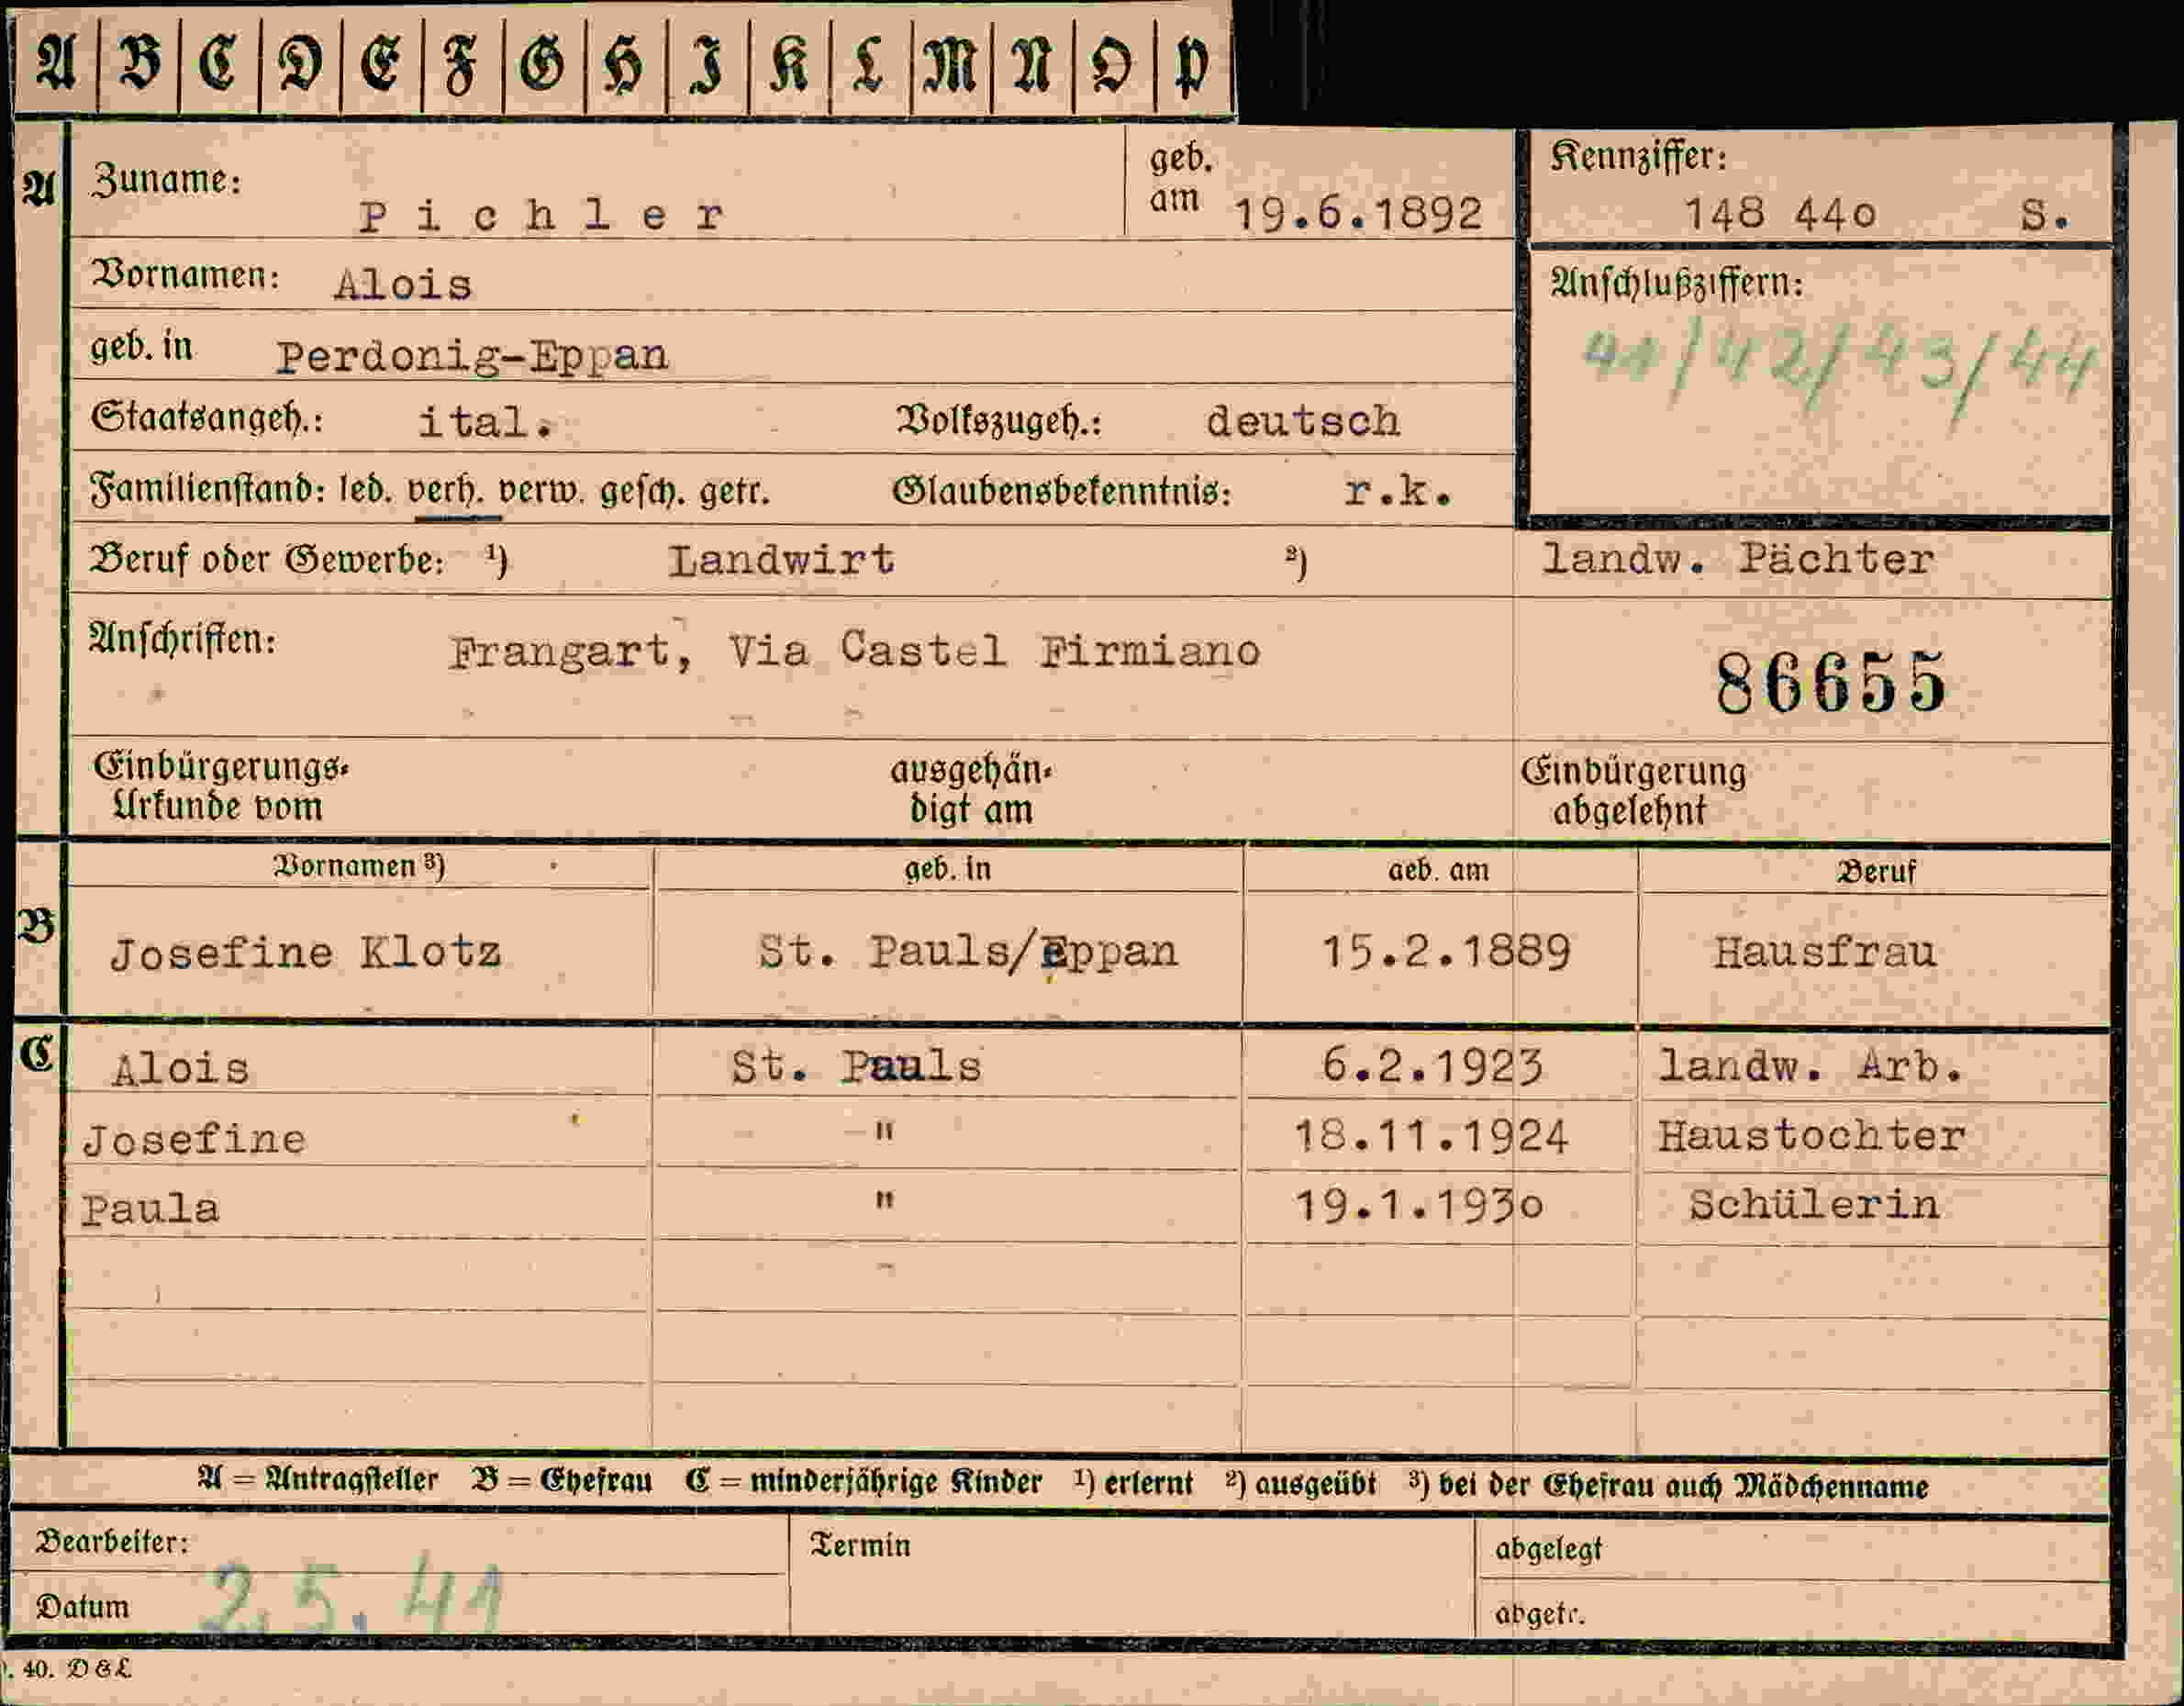 A B C D E F G H I K L M N O P
A Zuname: Pichler geb. am 19.6.1892 Kennziffer: 148 44o S.
Vornamen: Alois Anschlußziffern:
41/42/43/44
geb. in Perdonig-Eppan
Staatsangeh.: ital. Volkszugeh.: deutsch
Familienstand: led. verh. verw. gesch. getr. Glaubensbekenntnis: r.k.
Beruf oder Gewerbe: ¹) Landwirt ²) landw. Pächter
Anschriften: Frangart, Via Castel Firmiano 86655
Einbürgerungs- ausgehän- Einbürgerung
Urkunde vom digt am abgelehnt
Vornamen ³) geb. in geb. am Beruf
B Josefine Klotz St. Pauls/Eppan 15.2.1889 Hausfrau
C Alois St. Pauls 6.2.1923 landw. Arb.
Josefine " 18.11.1924 Haustochter
Paula " 19.1.193o Schülerin
A = Antragsteller B = Ehefrau C = minderjährige Kinder ¹) erlernt ²) ausgeübt ³) bei der Ehefrau auch Mädchenname
Bearbeiter: Termin abgelegt
Datum 2.5.41 abgetr.
. 40. D & L